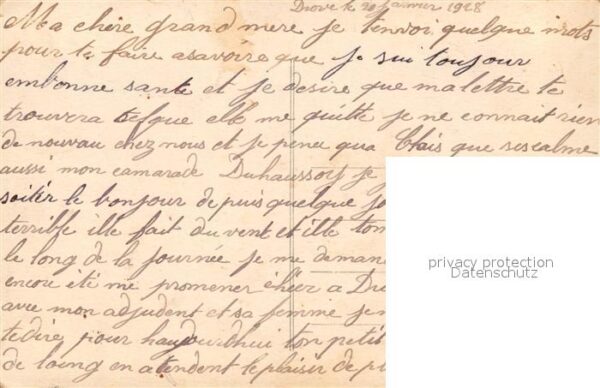 le 20 Janvier 1928
Ma chère grand mere je tenvoi quelque mots
pour te faire asavoire que je sui toujour
embonne sante et je desire que ma lettre te
trouvera telque elle me quitte je ne connait rien
de nouvau chez nous et je pence qua Blais que sescalme
aussi mon camarade Duhaussoy je
soitér le bonjour de puis quelque jo
terrible ille fait du vent et ille tom
le long de la journée je me deman
encou été me promener êhier a Du
avec mon adjudent et sa femme je n
te dire pour haujourd'hui ton petit
de loing en atendent le plaisir de
privacy protection
Datenschutz